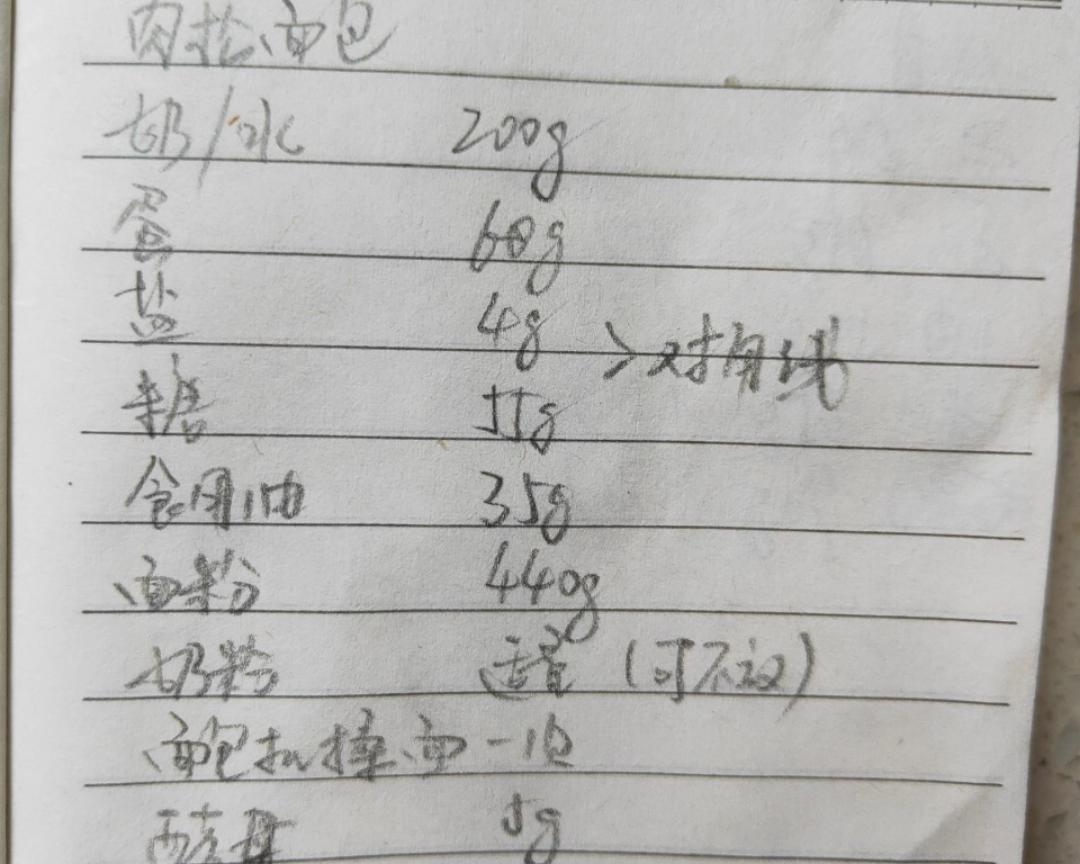 肉松面包
奶/水 200g
蛋 60g
盐 4g
>对角线
糖 55g
食用油 35g
面粉 440g
奶粉 适量 (可不放)
面包机揉面一次
酵母 5g